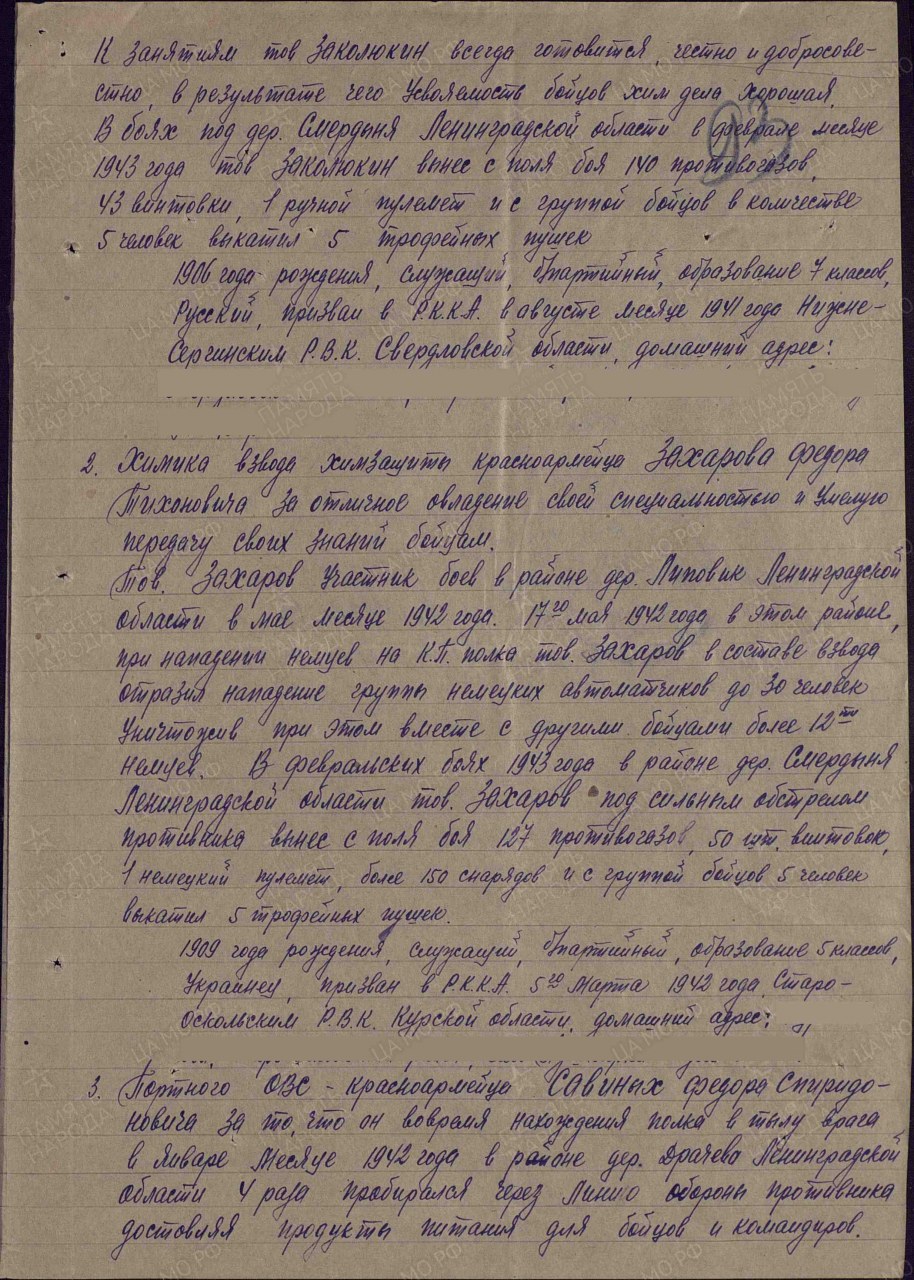 К занятиям тов Заколюкин всегда готовится, честно и добросове-
стно, в результате чего усвояемость бойцов хим дела хорошая.
В боях под дер. Смердыня Ленинградской области в феврале месяце
93
1943 года тов Заколюкин вынес с поля боя 140 противогазов,
43 винтовки, 1 ручной пулемет и с группой бойцов в количестве
5 человек выкатил 5 трофейных пушек
1906 года рождения, служащий, б/партийный, образование 7 классов,
Русский, призван в Р.К.К.А. в августе месяце 1941 года Нижне-
Сергинским Р.В.К. Свердловской области, домашний адрес:
2. Химика взвода химзащиты красноармейца Захарова Федора
Тихоновича за отличное овладение своей специальностью и умелую
передачу своих знаний бойцам.
Тов. Захаров участник боев в районе дер. Липовик Ленинградской
области в мае месяце 1942 года. 17го мая 1942 года в этом районе,
при нападении немцев на К.П. полка тов. Захаров в составе взвода
отразил нападение группы немецких автоматчиков до 30 человек
уничтожив при этом вместе с другими бойцами более 12ти
немцев. В февральских боях 1943 года в районе дер. Смердыня
Ленинградской области тов. Захаров под сильным обстрелом
противника вынес с поля боя 127 противогазов, 50 шт. винтовок,
1 немецкий пулемет, более 150 снарядов и с группой бойцов 5 человек
выкатил 5 трофейных пушек.
1909 года рождения, служащий, б/партийный, образование 5 классов,
Украинец, призван в Р.К.К.А. 5го Марта 1942 года Старо-
оскольским Р.В.К. Курской области, домашний адрес:
3. Портного ОВС - красноармейца Савиных Федора Спиридо-
новича за то, что он вовремя нахождения полка в тылу врага
в Январе месяце 1942 года в районе дер. Драчево Ленинградской
области 4 раза пробирался через линию обороны противника
достовляя продукты питания для бойцов и командиров.